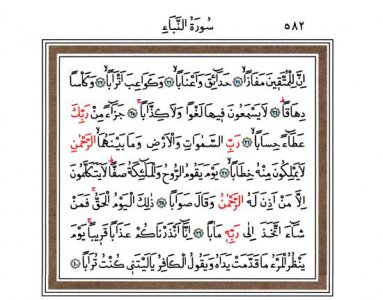 سُورَةُ النَّبَاءِ ٥٨٢
اِنَّ لِلْمُتَّق۪ينَ مَفَازًاۙ ﴿٣١﴾ حَدَٓائِقَ وَاَعْنَابًاۙ ﴿٣٢﴾ وَكَوَاعِبَ اَتْرَابًاۙ ﴿٣٣﴾ وَكَاْسًا
دِهَاقًاۜ ﴿٣٤﴾ لَا يَسْمَعُونَ ف۪يهَا لَغْوًا وَلَا كِذَّابًاۚ ﴿٣٥﴾ جَزَٓاءً مِنْ رَبِّكَ
عَطَٓاءً حِسَابًاۙ ﴿٣٦﴾ رَبِّ السَّمٰوَاتِ وَالْاَرْضِ وَمَا بَيْنَهُمَا الرَّحْمٰنِ
لَا يَمْلِكُونَ مِنْهُ خِطَابًاۚ ﴿٣٧﴾ يَوْمَ يَقُومُ الرُّوحُ وَالْمَلٰٓئِكَةُ صَفًّاۜ لَا يَتَكَلَّمُونَ
اِلَّا مَنْ اَذِنَ لَهُ الرَّحْمٰنُ وَقَالَ صَوَابًا ﴿٣٨﴾ ذٰلِكَ الْيَوْمُ الْحَقُّۚ فَمَنْ
شَٓاءَ اتَّخَذَ اِلٰى رَبِّه۪ مَاٰبًا ﴿٣٩﴾ اِنَّٓا اَنْذَرْنَاكُمْ عَذَابًا قَر۪يبًاۚ يَوْمَ
يَنْظُرُ الْمَرْءُ مَا قَدَّمَتْ يَدَاهُ وَيَقُولُ الْكَافِرُ يَا لَيْتَن۪ي كُنْتُ تُرَابًا ﴿٤٠﴾